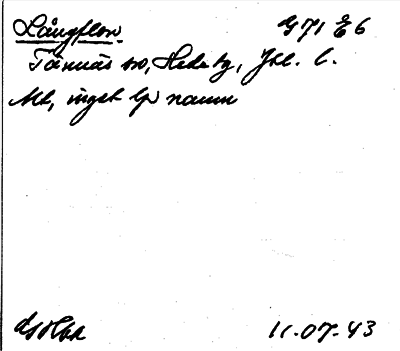 Långflon G71 E6
Tännäs sn, Hede tg, Jtl. l.
Mt, inget lp namn
11.07.43